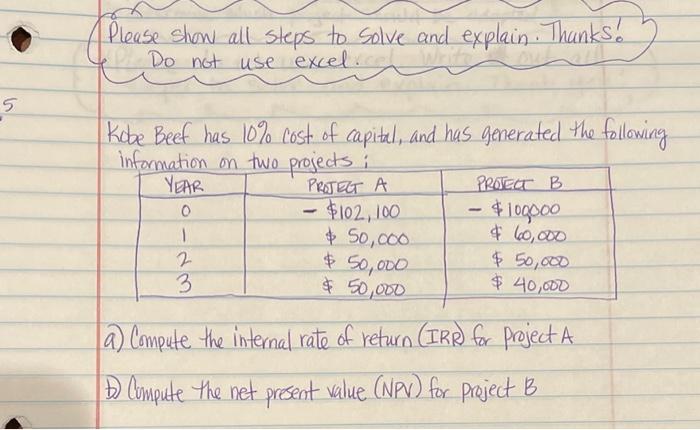 Please show all steps to solve and explain. Thanks!
Do not use excel.
5
Kobe Beef has 10% cost of capital, and has generated the following
information on two projects:
YEAR PROJECT A PROJECT B
0 - $102,100 - $100000
1 $ 50,000 $ 60,000
2 $ 50,000 $ 50,000
3 $ 50,000 $ 40,000
a) Compute the internal rate of return (IRR) for project A
b) Compute the net present value (NPV) for project B